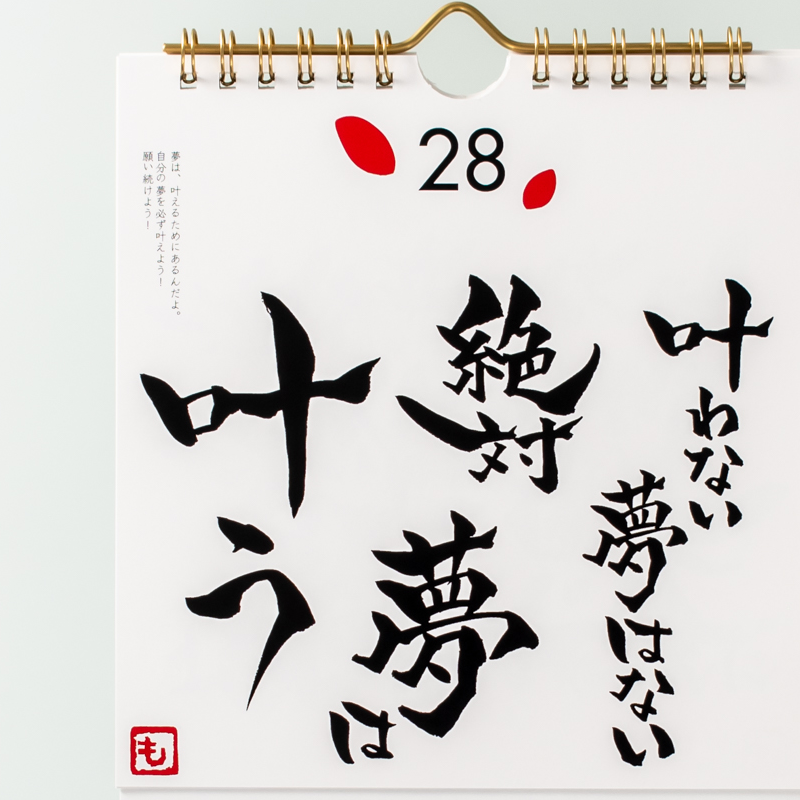 28
叶わない
夢はない
絶対
夢は
叶う
夢は、叶えるためにあるんだよ。
自分の夢を必ず叶えよう！
願い続けよう！
も